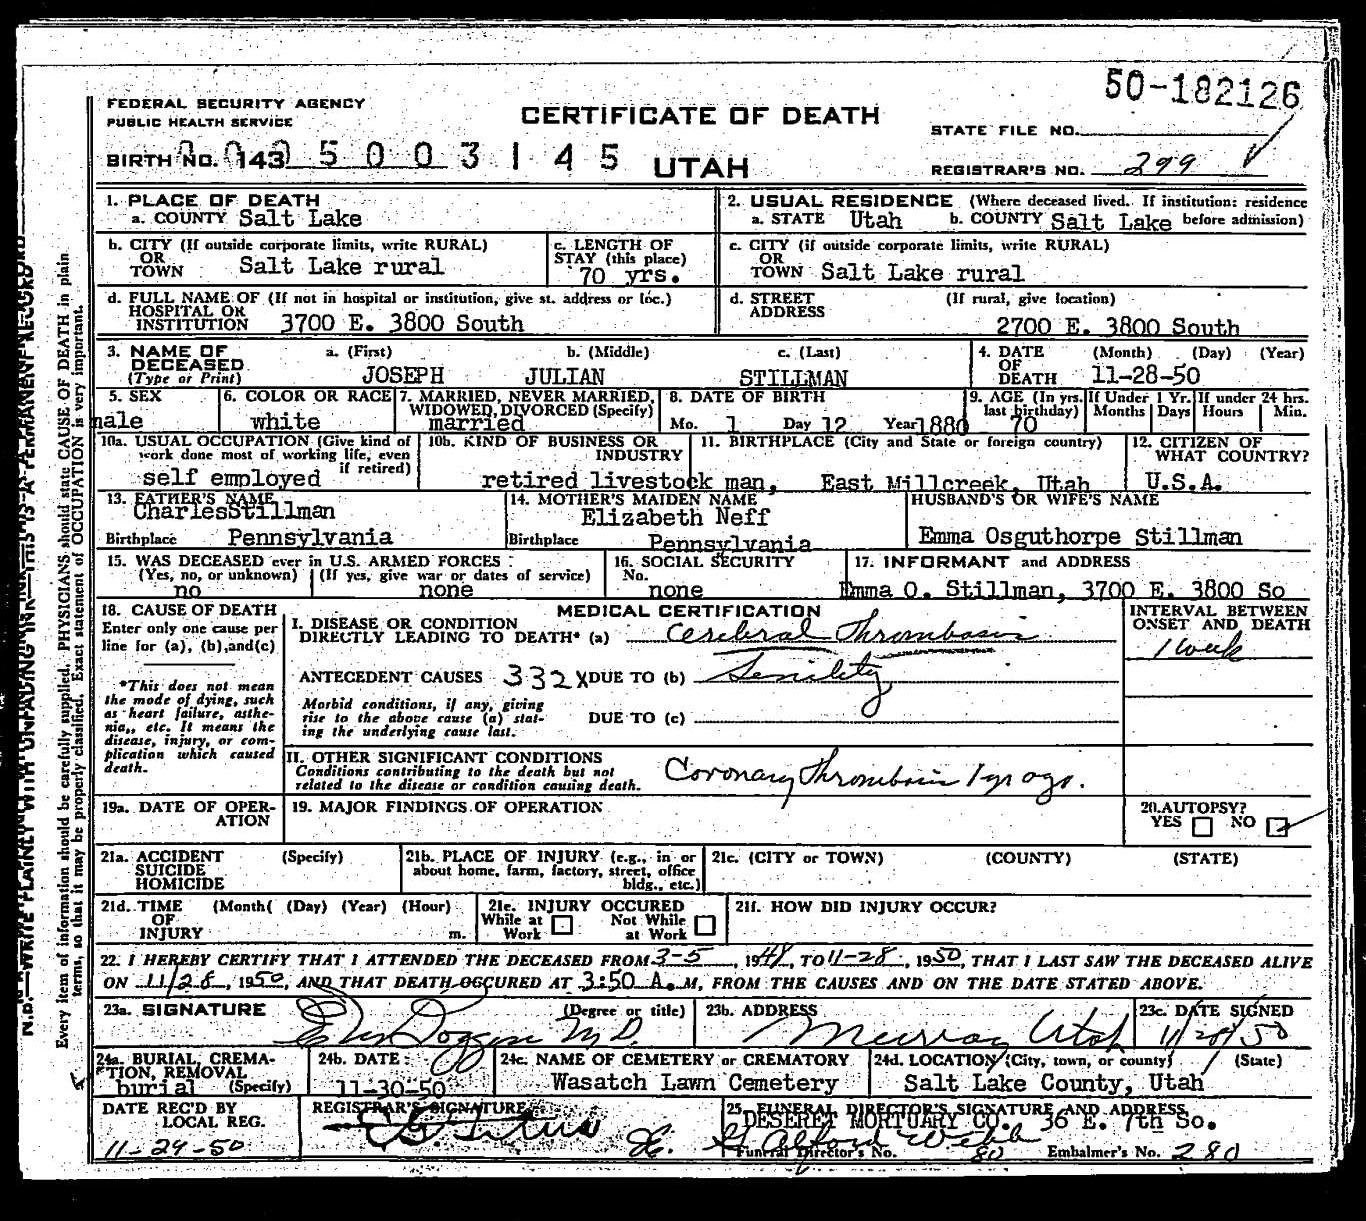 50-182126
FEDERAL SECURITY AGENCY
PUBLIC HEALTH SERVICE
CERTIFICATE OF DEATH
STATE FILE NO.
BIRTH NO. 143 5003145
UTAH
REGISTRAR'S NO. 299
1. PLACE OF DEATH
a. COUNTY Salt Lake
2. USUAL RESIDENCE (Where deceased lived. If institution: residence
a. STATE Utah b. COUNTY Salt Lake before admission)
b. CITY (If outside corporate limits, write RURAL)
OR
TOWN Salt Lake rural
c. LENGTH OF
STAY (this place)
70 yrs.
c. CITY (if outside corporate limits, write RURAL)
OR
TOWN Salt Lake rural
d. FULL NAME OF (If not in hospital or institution, give st. address or loc.)
HOSPITAL OR
INSTITUTION 3700 E. 3800 South
d. STREET (If rural, give location)
ADDRESS
2700 E. 3800 South
3. NAME OF a. (First) b. (Middle) c. (Last)
DECEASED
(Type or Print) JOSEPH JULIAN STILLMAN
4. DATE (Month) (Day) (Year)
OF
DEATH 11-28-50
5. SEX
male
6. COLOR OR RACE
white
7. MARRIED, NEVER MARRIED,
WIDOWED, DIVORCED (Specify)
married
8. DATE OF BIRTH
Mo. 1 Day 12 Year 1880
9. AGE (In yrs.
last birthday)
70
If Under 1 Yr.
Months Days
If under 24 hrs.
Hours Min.
10a. USUAL OCCUPATION (Give kind of
work done most of working life, even
if retired)
self employed
10b. KIND OF BUSINESS OR
INDUSTRY
retired livestock man,
11. BIRTHPLACE (City and State or foreign country)
East Millcreek, Utah
12. CITIZEN OF
WHAT COUNTRY?
U.S.A.
13. FATHER'S NAME
CharlesStillman
Birthplace Pennsylvania
14. MOTHER'S MAIDEN NAME
Elizabeth Neff
Birthplace Pennsylvania
HUSBAND'S OR WIFE'S NAME
Emma Osguthorpe Stillman
15. WAS DECEASED ever in U.S. ARMED FORCES
(Yes, no, or unknown) (If yes, give war or dates of service)
no none
16. SOCIAL SECURITY
No.
none
17. INFORMANT and ADDRESS
Emma O. Stillman, 3700 E. 3800 So
18. CAUSE OF DEATH
Enter only one cause per
line for (a), (b), and(c)
*This does not mean
the mode of dying, such
as heart failure, asthe-
nia,, etc. It means the
disease, injury, or com-
plication which caused
death.
MEDICAL CERTIFICATION
I. DISEASE OR CONDITION
DIRECTLY LEADING TO DEATH* (a) Cerebral Thrombosis
ANTECEDENT CAUSES 332X DUE TO (b) Senility
Morbid conditions, if any, giving
rise to the above cause (a) stat-
ing the underlying cause last.
DUE TO (c)
INTERVAL BETWEEN
ONSET AND DEATH
1 week
II. OTHER SIGNIFICANT CONDITIONS
Conditions contributing to the death but not
related to the disease or condition causing death.
Coronary Thrombosis 1 yr ago.
19a. DATE OF OPER-
ATION
19. MAJOR FINDINGS OF OPERATION
20. AUTOPSY?
YES NO
21a. ACCIDENT (Specify)
SUICIDE
HOMICIDE
21b. PLACE OF INJURY (e.g., in or
about home, farm, factory, street, office
bldg., etc.)
21c. (CITY or TOWN) (COUNTY) (STATE)
21d. TIME (Month( (Day) (Year) (Hour)
OF
INJURY m.
21e. INJURY OCCURED
While at Not While
Work at Work
21f. HOW DID INJURY OCCUR?
22. I HEREBY CERTIFY THAT I ATTENDED THE DECEASED FROM 3-5, 1948, TO 11-28, 1950, THAT I LAST SAW THE DECEASED ALIVE
ON 11/28, 1950, AND THAT DEATH OCCURED AT 3:50 A. M, FROM THE CAUSES AND ON THE DATE STATED ABOVE.
23a. SIGNATURE (Degree or title)
M.D.
23b. ADDRESS
Murray Utah
23c. DATE SIGNED
11/28/50
24a. BURIAL, CREMA-
TION, REMOVAL
burial (Specify)
24b. DATE
11-30-50
24c. NAME OF CEMETERY or CREMATORY
Wasatch Lawn Cemetery
24d. LOCATION (City, town, or county) (State)
Salt Lake County, Utah
DATE REC'D BY
LOCAL REG.
11-29-50
REGISTRAR'S SIGNATURE
25. FUNERAL DIRECTOR'S SIGNATURE AND ADDRESS
DESERET MORTUARY CO. 36 E. 7th So.
Alford Webb
Funeral Director's No. 80 Embalmer's No. 280
N.B.—WRITE PLAINLY WITH UNFADING INK—THIS IS A PERMANENT RECORD
Every item of information should be carefully supplied. PHYSICIANS should state CAUSE OF DEATH in plain
terms, so that it may be properly classified. Exact statement of OCCUPATION is very important.